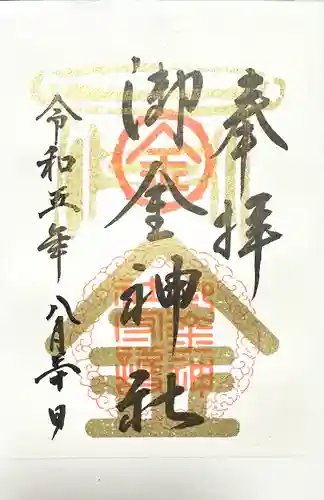 奉拝
御金神社
令和五年
八月三十日
金